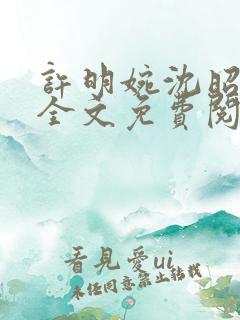 許明婉沈昭
全文免費閱
看見愛ui
未經同意禁止轉載